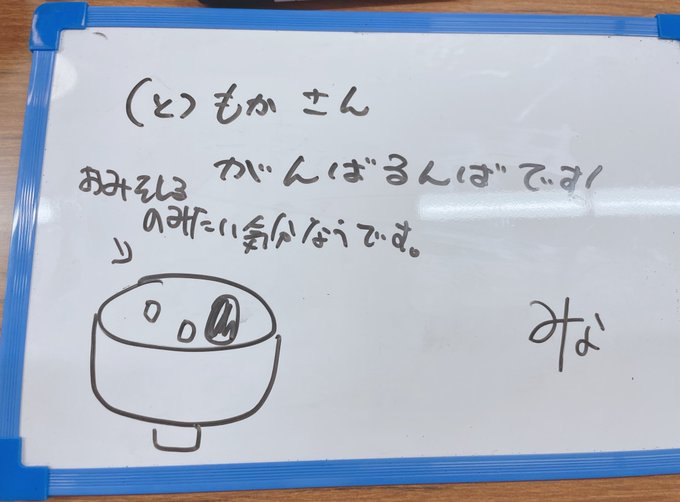 (と)もかさん
がんばるんばです!
おみそしる
のみたい気分なうです。
みな